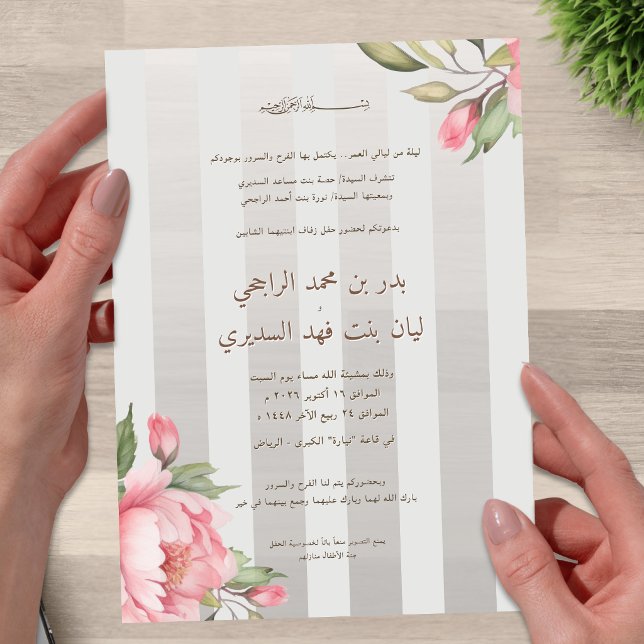 بسم الله الرحمن الرحيم
ليلة من ليالي العمر.. يكتمل بها الفرح والسرور بوجودكم
تتشرف السيدة/ حصة بنت مساعد السديري
وبمعيتها السيدة/ نورة بنت أحمد الراجحي
بدعوتكم لحضور حفل زفاف ابنتيهما الشابين
بدر بن محمد الراجحي
و
ليان بنت فهد السديري
وذلك بمشيئة الله مساء يوم السبت
الموافق ١٦ أكتوبر ٢٠٢٦ م
الموافق ٢٤ ربيع الآخر ١٤٤٨ ه
في قاعة "نيارة" الكبرى - الرياض
وبحضوركم يتم لنا الفرح والسرور
بارك الله لهما وبارك عليهما وجمع بينهما في خير
يمنع التصوير منعاً باتاً لخصوصية الحفل
جنة الأطفال منازلهم